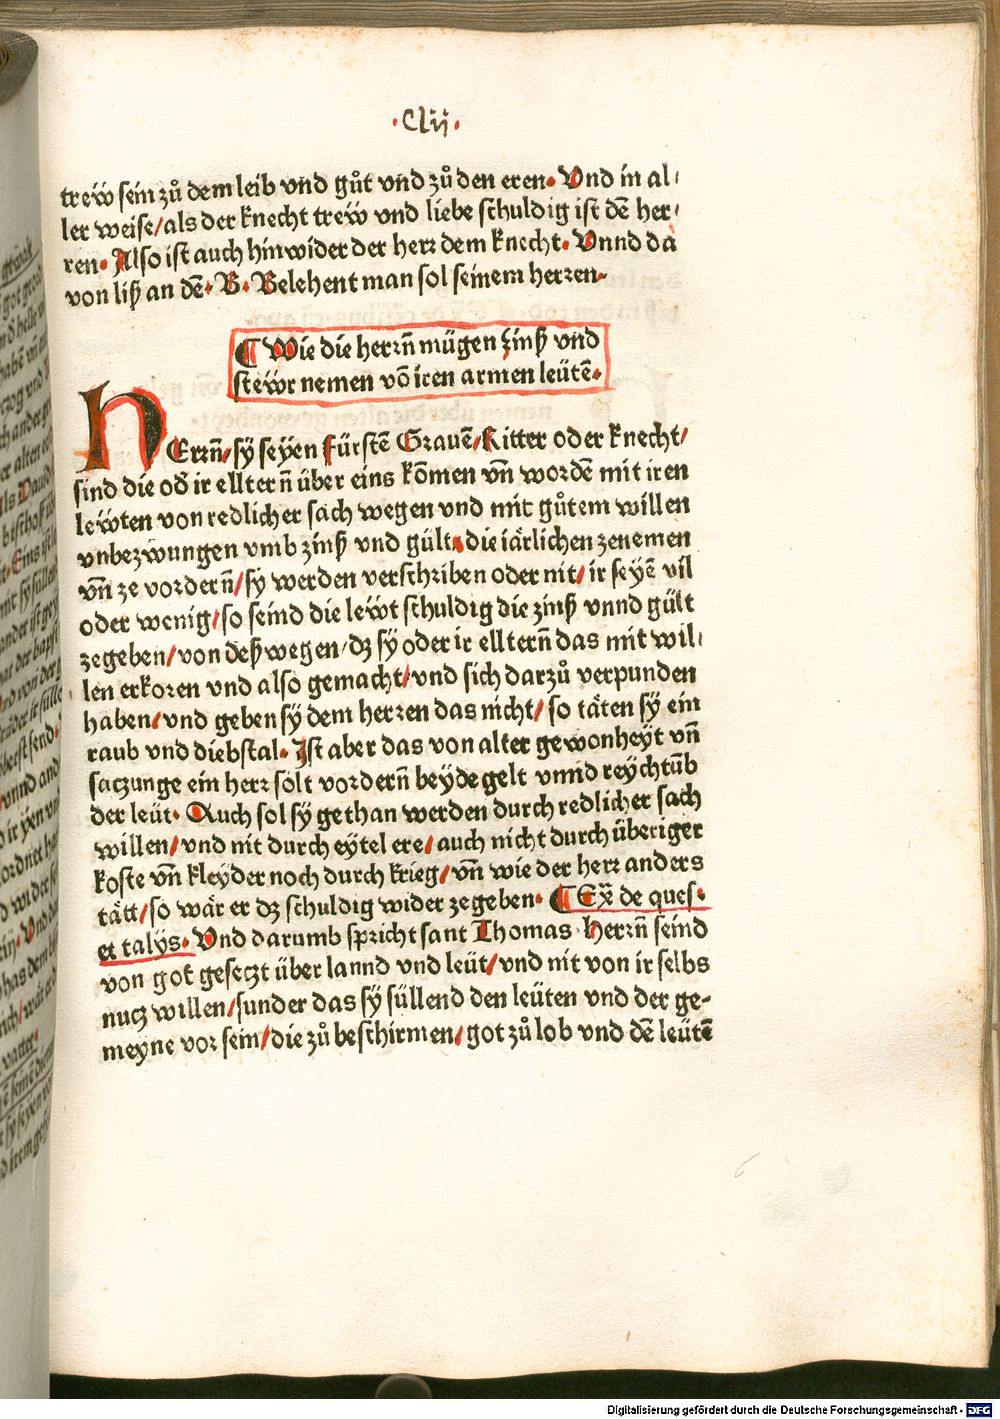 ·Clij·
trew̋ sein zů dem leib vnd gůt vnd zů den eren· Vnd in al⸗
ler weise/als der knecht trew̋ vnd liebe schuldig ist dē her⸗
ren· Also ist auch hinwider der herr dem knecht· Vnnd da
von liß an dē· B· Belehent man sol seinem herren·
¶ Wie die herrn̄ mügen zinß vnd
stew̋r nemen vō iren armen leütē·
HErrn̄/sy̋ sey̋en fürstē Grauē/Ritter oder knecht/
sind die od̄ ir elltern̄ über eins kōmen vn̄ wordē mit iren
lew̋ten von redlicher sach wegen vnd mit gůtem willen
vnbezwungen vmb zinß vnd gült/die iärlichen zenemen
vn̄ ze vordern̄/sy̋ werden verschriben oder nit/ir seyē vil
oder wenig/so seind die lew̋t schuldig die zinß vnnd gült
zegeben/von deß wegen/dz sy̋ oder ir elltern̄ das mit wil⸗
len erkoren vnd also gemacht/vnd sich darzů verpunden
haben/vnd geben sy̋ dem herren das nicht/so täten sy̋ ein
raub vnd diebstal· Ist aber das von alter gewonhey̋t vn̄
saczunge ein herr solt vordern̄ bey̋de gelt vnnd rey̋chtūb
der leüt· Auch sol sy̋ gethan werden durch redlicher sach
willen/vnd nit durch ey̋tel ere/auch nicht durch überiger
koste vn̄ kley̋der noch durch krieg/vn̄ wie der herr anders
tätt/so wär er dz schuldig wider zegeben· ¶ Ex̄ de ques·
et taly̋s· Vnd darumb spricht sant Thomas· Herrn̄ seind
von got geseczt über lannd vnd leüt/vnd nit von ir selbs
nucz willen/sunder das sy̋ süllend den leüten vnd der ge⸗
meyne vor sein/die zů beschirmen/got zů lob vnd dē leütē
Digitalisierung gefördert durch die Deutsche Forschungsgemeinschaft - DFG